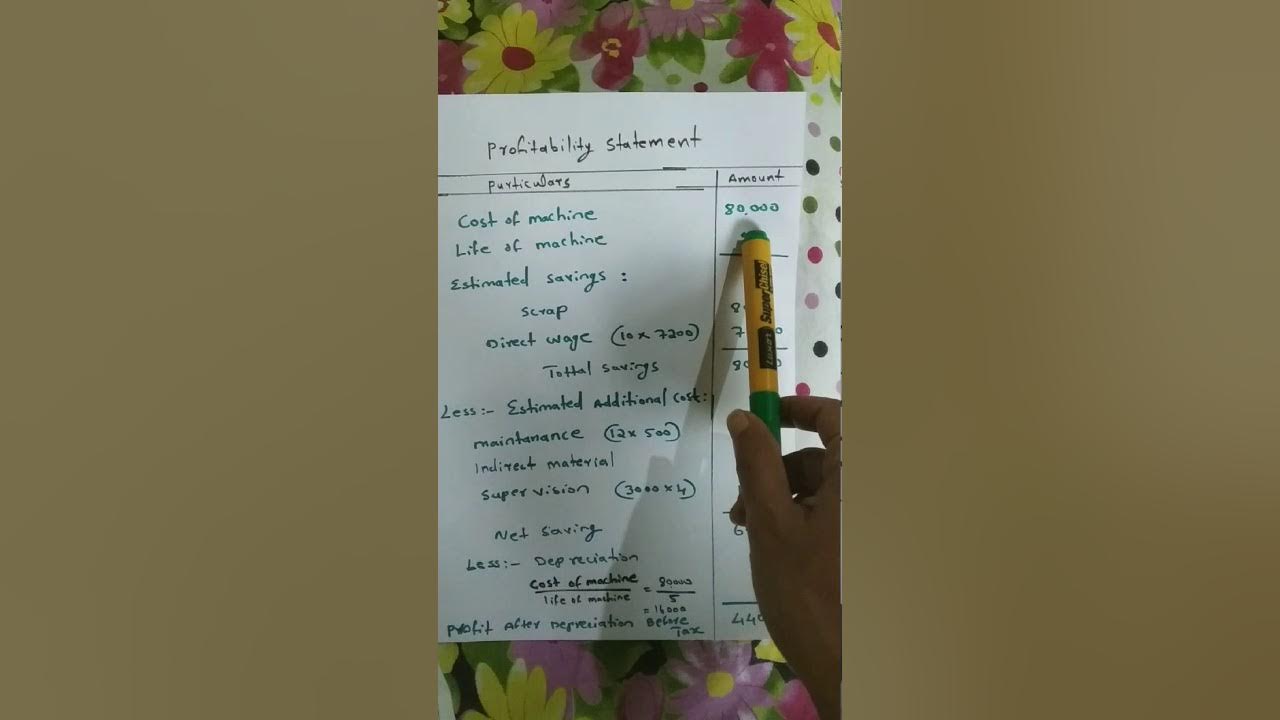 Profitability statement
Purticulars Amount
Cost of machine 80,000
Life of machine
Estimated savings :
Scrap
Direct wage (10 x 7200)
Tottal savings
Less:- Estimated Additional cost:
maintanance (12 x 500)
Indirect material
Super vision (3000 x 4)
Net saving
Less:- Depreciation
Cost of machine = 80000
life of machine 5
= 16000
Profit After Depreciation Before
Tax
Luxor Superchisel